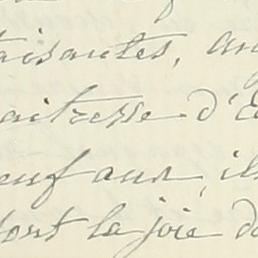 aisantes, au
aitresse d'E
euf ans, ils
font la joie de